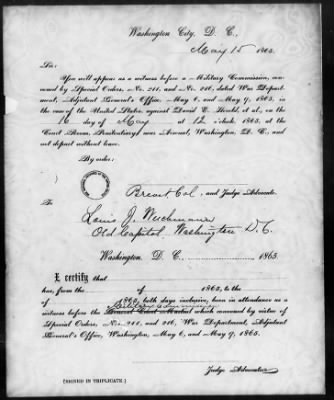 Washington City, D. C.,
May 15 1865.
Sir:
You will appear as a witness before a Military Commission, convened
by Special Orders, No. 211, and No. 216, dated War Department,
Adjutant General's Office, May 6, and May 9, 1865, in
the case of the United States, against David E. Herold, et al., on the
16 day of May at 12 o'clock, 1865, at the
Court Room, Penitentiary near Arsenal, Washington, D. C., and
not depart without leave.
By order:
Brevet Col. and Judge Advocate.
To
Louis J. Weichmann
Old Capitol, Washington D.C.
Washington, D. C. 1865.
I certify that
has, from the of 1865, to the
of 1865, both days inclusive, been in attendance as a
witness before the General Court Martial which convened by virtue of
Special Orders, Nos. 211, and 216, War Department, Adjutant
General's Office, Washington, May 6, and May 9, 1865.
Judge Advocate.
[SIGNED IN TRIPLICATE.]